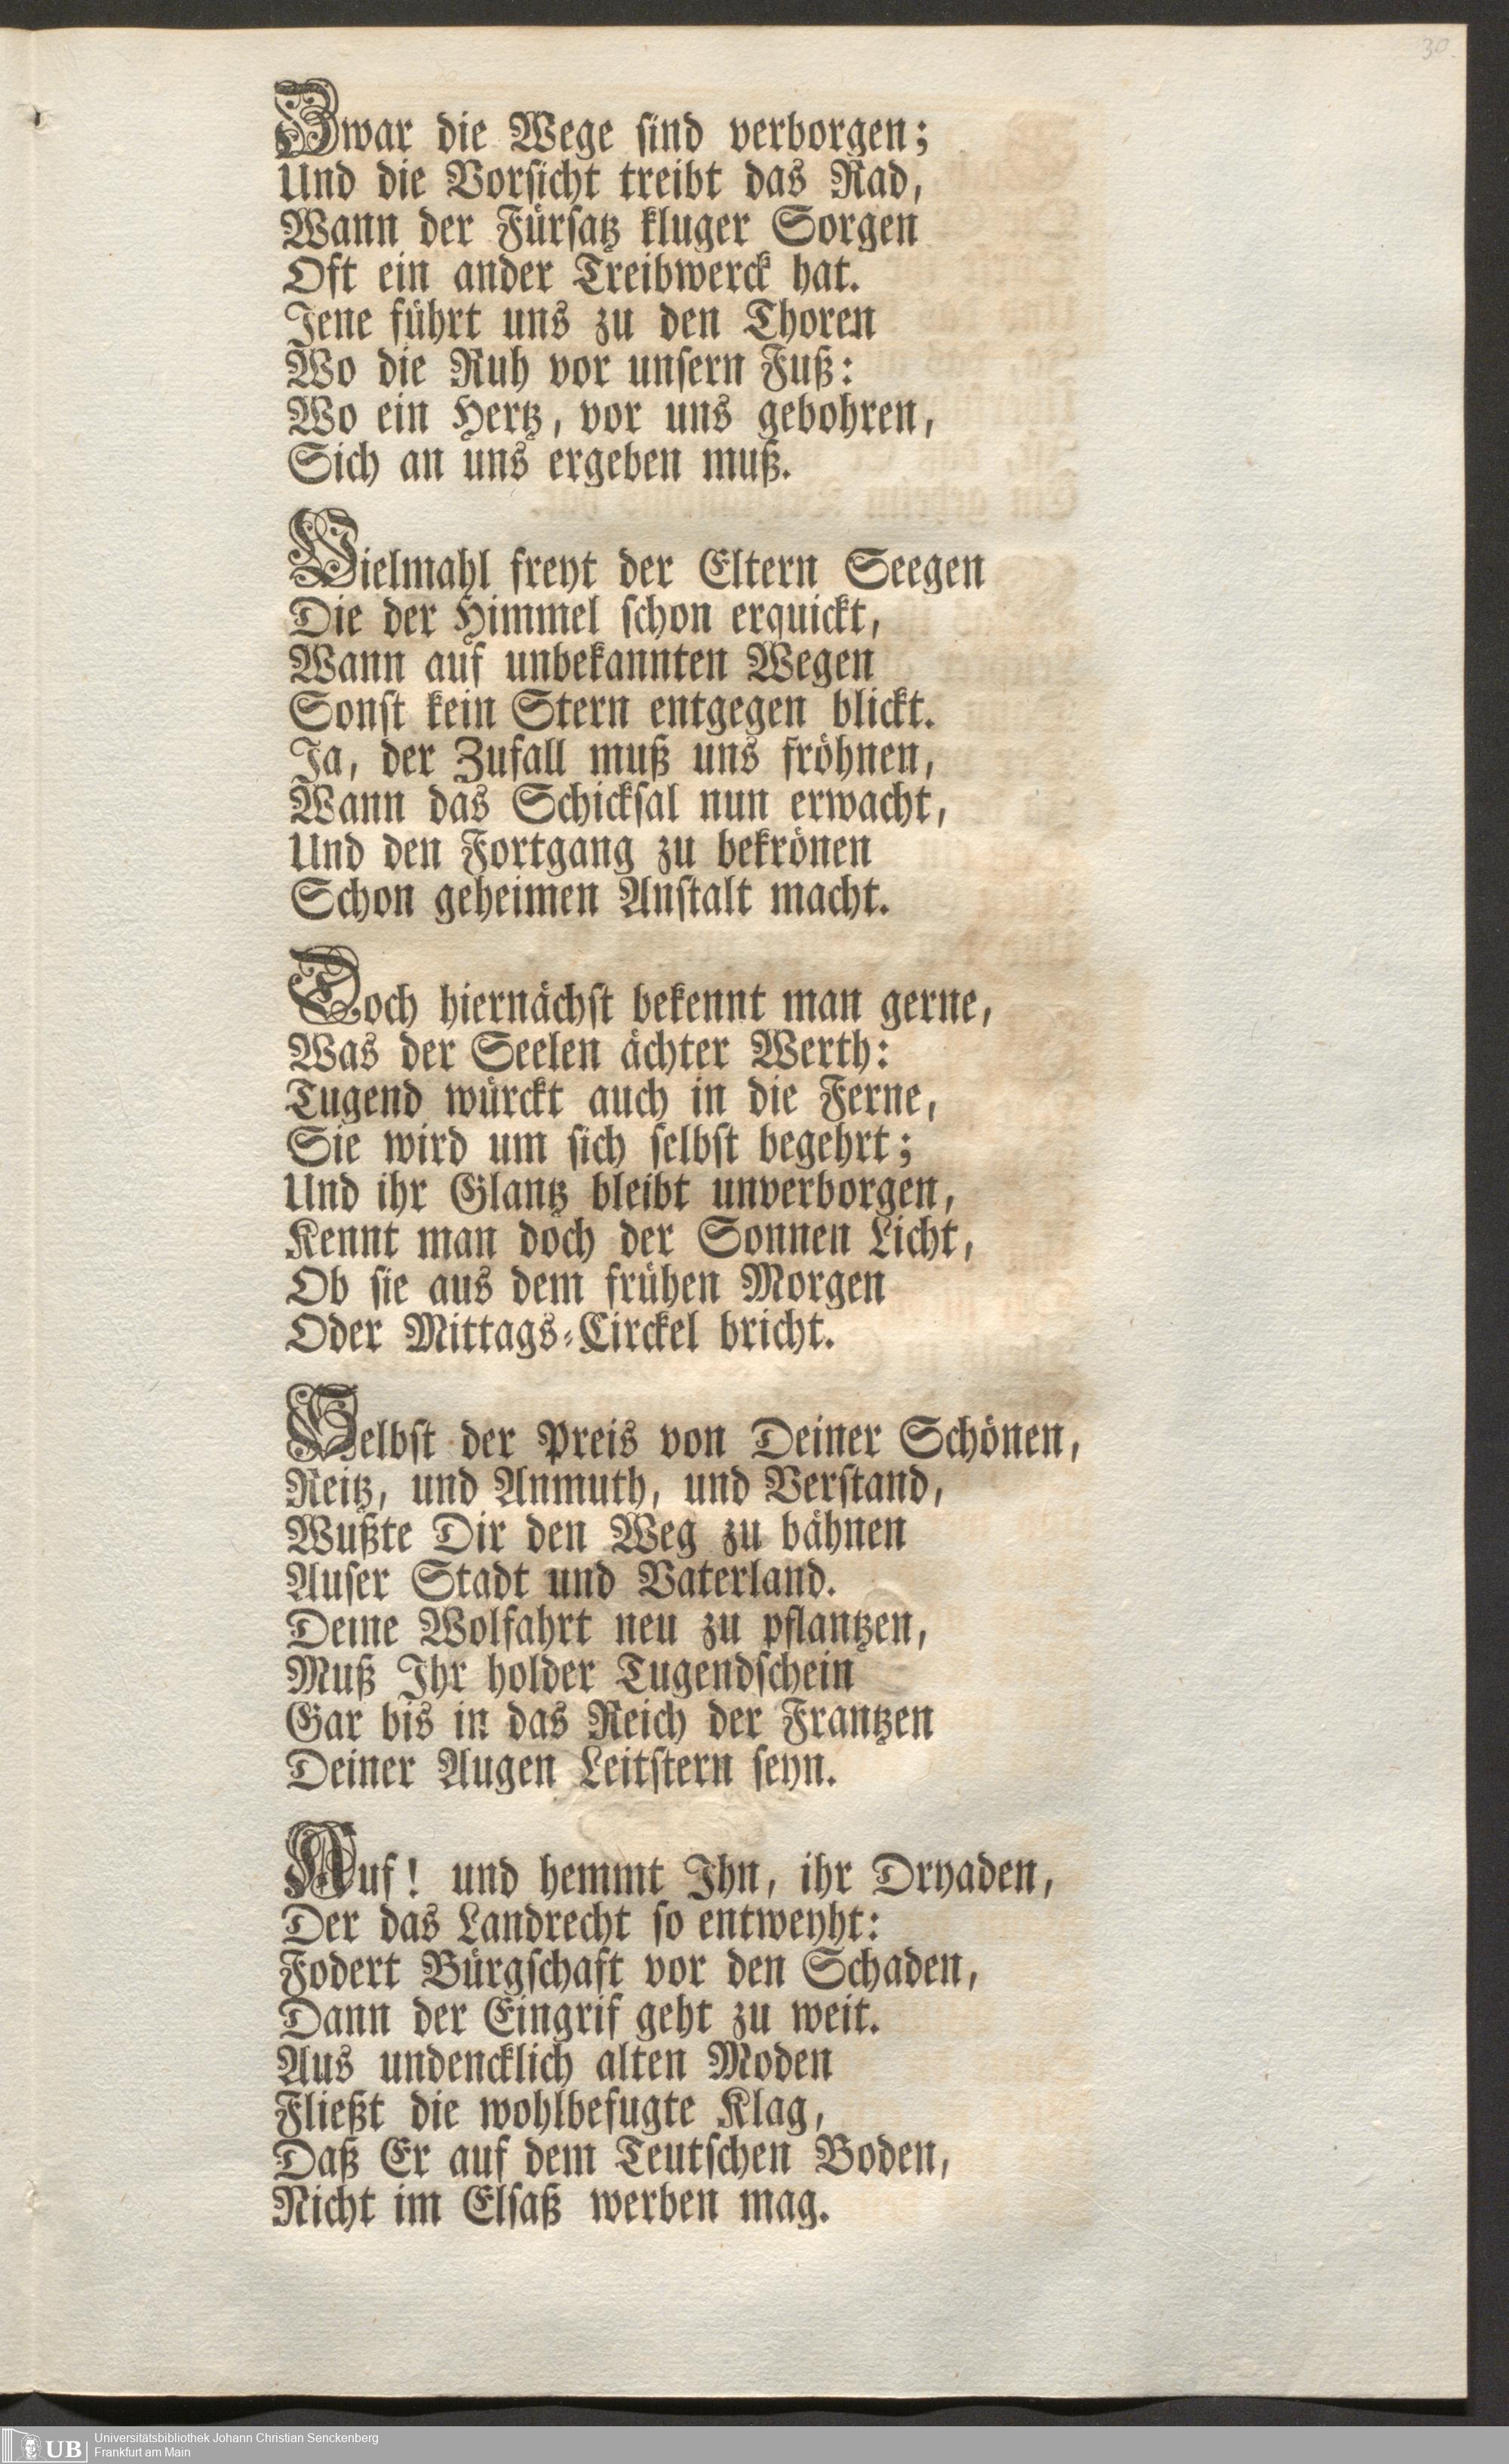 30
Zwar die Wege sind verborgen;
Und die Vorsicht treibt das Rad,
Wann der Fürsatz kluger Sorgen
Oft ein ander Treibwerck hat.
Jene führt uns zu den Thoren
Wo die Ruh vor unsern Fuß:
Wo ein Hertz, vor uns gebohren,
Sich an uns ergeben muß.
Vielmahl freyt der Eltern Seegen
Die der Himmel schon erquickt,
Wann auf unbekannten Wegen
Sonst kein Stern entgegen blickt.
Ja, der Zufall muß uns fröhnen,
Wann das Schicksal nun erwacht,
Und den Fortgang zu bekrönen
Schon geheimen Anstalt macht.
Doch hiernächst bekennt man gerne,
Was der Seelen ächter Werth:
Tugend würckt auch in die Ferne,
Sie wird um sich selbst begehrt;
Und ihr Glantz bleibt unverborgen,
Kennt man doch der Sonnen Licht,
Ob sie aus dem frühen Morgen
Oder Mittags-Circkel bricht.
Selbst der Preis von Deiner Schönen,
Reitz, und Anmuth, und Verstand,
Wußte Dir den Weg zu bähnen
Auser Stadt und Vaterland.
Deine Wolfahrt neu zu pflantzen,
Muß Ihr holder Tugendschein
Gar bis in das Reich der Frantzen
Deiner Augen Leitstern seyn.
Auf! und hemmt Ihn, ihr Dryaden,
Der das Landrecht so entweyht:
Fodert Bürgschaft vor den Schaden,
Dann der Eingrif geht zu weit.
Aus undencklich alten Moden
Fließt die wohlbefugte Klag,
Daß Er auf dem Teutschen Boden,
Nicht im Elsaß werben mag.
UB
Universitätsbibliothek Johann Christian Senckenberg
Frankfurt am Main